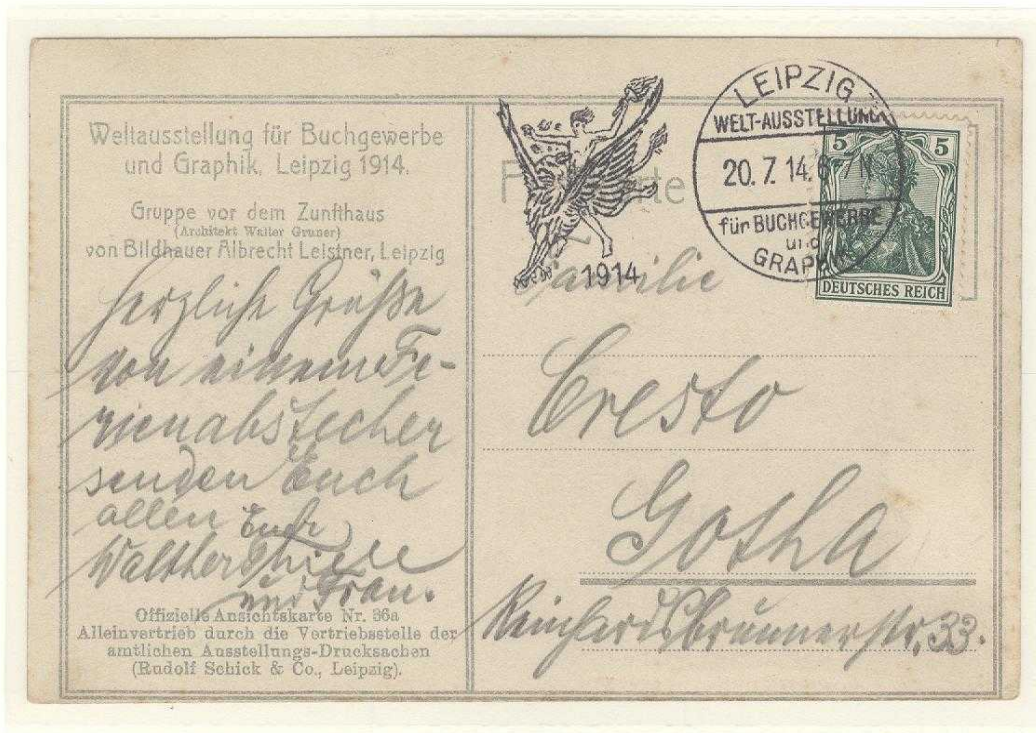 Weltausstellung für Buchgewerbe
und Graphik, Leipzig 1914.
Gruppe vor dem Zunfthaus
(Architekt Walter Gruner)
von Bildhauer Albrecht Leistner, Leipzig
Herzliche Grüße
von einem Fe-
rienabstecher
senden Euch
allen Eure
Walther
und Frau.
Offizielle Ansichtskarte Nr. 36a
Alleinvertrieb durch die Vertriebsstelle der
amtlichen Ausstellungs-Drucksachen
(Rudolf Schick & Co., Leipzig).
1914
LEIPZIG
WELT-AUSSTELLUNG
20. 7. 14. 6-7 N.
für BUCHGEWERBE
und
GRAPHIK
5 5
DEUTSCHES REICH
Familie
Cresto
Gotha
Reinhardsbrunnerstr. 33.